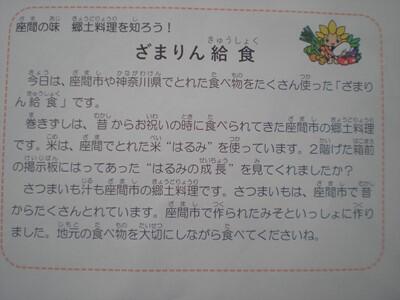 座間の味　郷土料理を知ろう！
ざまりん給食
今日は、座間市や神奈川県でとれた食べ物をたくさん使った「ざまり
ん給食」です。
巻きずしは、昔からお祝いの時に食べられてきた座間市の郷土料理
です。米は、座間でとれた米“はるみ”を使っています。2階げた箱前
の掲示板にはってあった“はるみの成長”を見てくれましたか？
さつまいも汁も座間市の郷土料理です。さつまいもは、座間市で昔
からたくさんとれています。座間市で作られたみそといっしょに作り
ました。地元の食べ物を大切にしながら食べてくださいね。